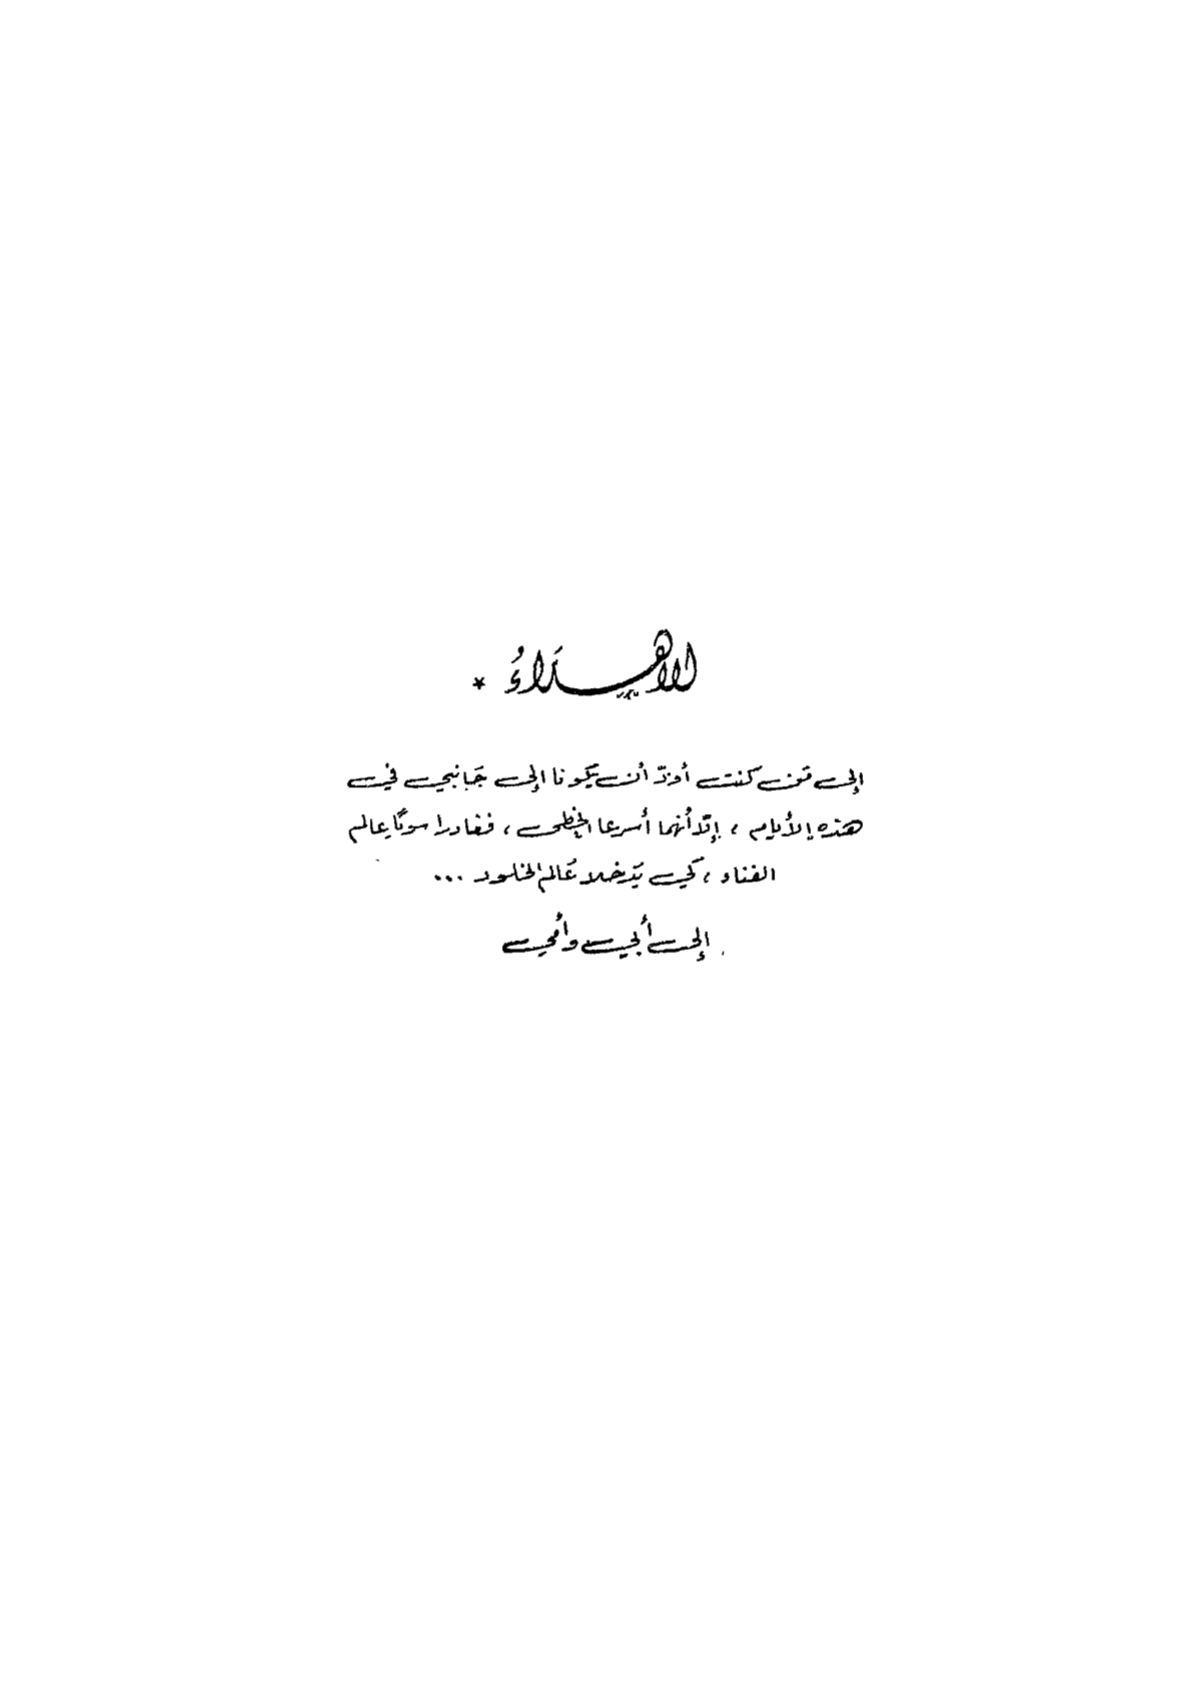 الاهداءُ *
إلى من كنت أودّ أن يكونا إلى جَانبي في
هذه الأيام ، إلّا أنهما أسرعا الخطى ، فغادرا سويًا عالم
الفناء ، كَي يَدخلا عَالم الخلود ...
إلى أبي وأمي